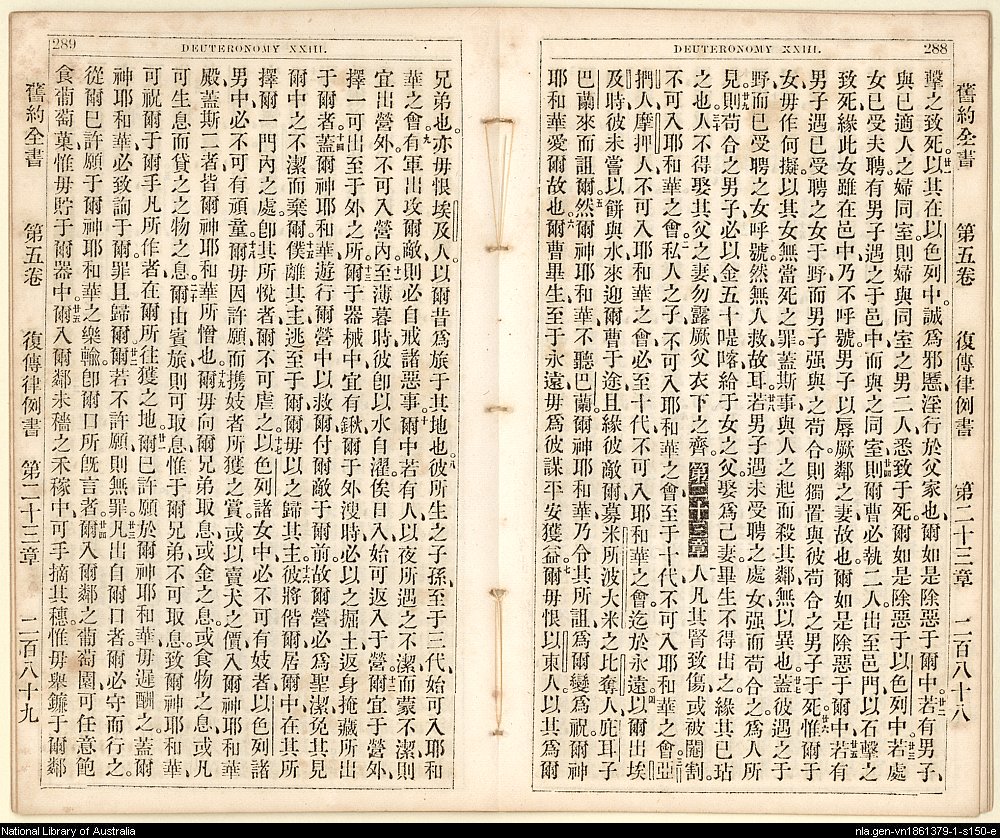 288
DEUTERONOMY XXIII.
舊約全書 第五卷 復傳律例書 第二十三章 二百八十八
擊之致死、以其在以色列中、誠為邪慝、淫行於父家也、爾如是除惡于爾中。廿二若有男子、
與已適人之婦同室、則婦與同室之男二人、悉致于死、爾如是除惡于以色列中。廿三若處
女已受夫聘、有男子遇之于邑中、而與之同室、廿四則爾曹必執二人、出至邑門、以石擊之
致死、緣此女雖在邑中、乃不呼號、男子以辱厥鄰之妻故也、爾如是除惡于爾中。廿五若有
男子遇已受聘之女于野、而男子强與之苟合、則獨置與彼苟合之男子于死、廿六惟于
女毋作何擬、以其女無當死之罪、蓋斯事與人之起而殺其鄰無以異也、廿七蓋彼遇之于
野、而已受聘之女呼號、然無人救故耳。廿八若男子遇未受聘之處女、强而苟合之、為人所
見、廿九則苟合之男子、必以金五十㖷喀給于女之父、娶為己妻、畢生不得出之、緣其已玷
之也。三十人不得娶其父之妻、勿露厥父衣下之齊。
第二十三章 一凡其腎致傷、或被閹割、
不可入耶和華之會。二私人之子、不可入耶和華之會、至于十代、不可入耶和華之會。三亞
捫人、摩押人、不可入耶和華之會、必至十代、不可入耶和華之會、迄於永遠、四以爾出埃
及時、彼未嘗以餅與水來迎爾曹于途、且緣彼敵爾、募米所波大米之比奪人庇耳子
巴蘭來而詛爾。五然爾神耶和華不聽巴蘭、爾神耶和華乃令其所詛為爾變為祝、爾神
耶和華愛爾故也。六爾曹畢生、至于永遠、毋為彼謀平安獲益。七爾毋恨以東人、以其為爾
289
DEUTERONOMY XXIII.
兄弟也、亦毋恨埃及人、以爾昔為旅于其地也。八彼所生之子孫至于三代、始可入耶和
華之會。九有軍出攻爾敵、則必自戒諸惡事。十爾中若有人以夜所遇之不潔、而蒙不潔、則
宜出營外、不可入營內、十一至薄暮時、彼卽以水自濯、俟日入、始可返入于營。十二宜于營外、
擇一可出至于外之所、十三爾于器械中、宜有鍬、爾于外溲時、必以之掘土、返身掩藏所出
于爾者、十四蓋爾神耶和華、遊行爾營中、以救爾、付爾敵于爾前、故爾營必為聖潔、免其見
爾中之不潔而棄爾。十五僕離其主、逃至于爾、爾毋以之歸其主、十六彼將偕爾居爾中、在其所
擇爾一門內之處、卽其所悅者、爾不可虐之。十七以色列諸女中、必不可有妓者、以色列諸
男中、必不可有頑童。十八爾毋因許願、而攜妓者所獲之貲、或以賣犬之價、入爾神耶和華
殿、蓋斯二者、皆爾神耶和華所憎也。十九爾毋向爾兄弟取息、或金之息、或食物之息、或凡
可生息而貸之之物之息、二十爾由賓旅則可取息、惟于爾兄弟不可取息、致爾神耶和華
可祝爾于爾手凡所作者、在爾所往獲之地。廿一爾已許願於爾神耶和華、毋遲酬之、蓋爾
神耶和華、必致詢于爾、罪且歸爾、廿二爾若不許願、則無罪、廿三凡出自爾口者、爾必守而行之、
從爾已許願于爾神耶和華之樂輸、卽爾口所旣言者。廿四爾入爾鄰之葡萄園、可任意飽
食葡萄菓、惟毋貯于爾器中。廿五爾入爾鄰未穡之禾稼中、可手摘其穗、惟毋舉鐮于爾鄰
舊約全書 第五卷 復傳律例書 第二十三章 二百八十九
National Library of Australia
nla.gen-vn1861379-1-s150-e